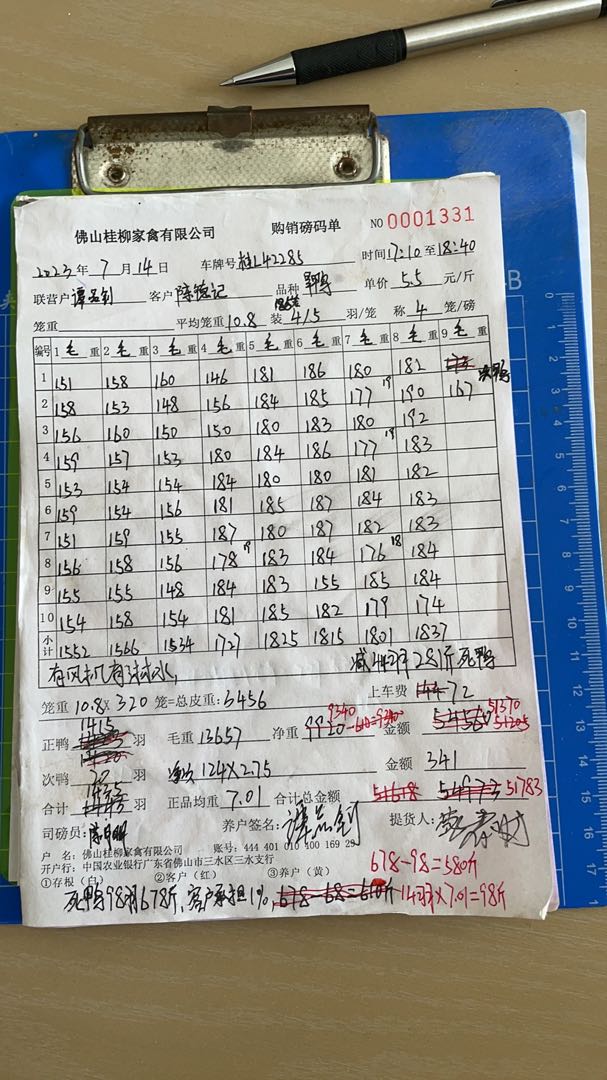 佛山桂柳家禽有限公司 购销磅码单 NO 0001331
2023年 7月14日 车牌号 桂L42285 时间17:10至18:40
联营户 客户 陈德记 品种 旱鸭 单价 5.5 元/斤
笼重 平均笼重 10.8 装 4/5 羽/笼 称 4 笼/磅
编号 1 毛重 2 毛重 3 毛重 4 毛重 5 毛重 6 毛重 7 毛重 8 毛重 9 毛重
1 151 158 160 146 181 186 180 182
2 158 153 148 156 184 185 177 19 190 167
3 156 160 150 150 180 183 180 192
4 159 157 153 180 184 186 177 19 183
5 153 154 154 184 180 180 181 182
6 159 154 156 181 185 187 184 183
7 151 159 155 187 180 187 182 183
8 156 158 156 178 19 183 184 176 18 184
9 155 155 148 184 183 155 185 184
10 154 158 154 181 185 182 179 174
小计 1552 1566 1534 1727 1825 1815 1801 1837
有风机有淋水, 减4羽28斤死鸭
笼重 10.8×320 笼=总皮重: 3456 上车费 144 72
正鸭 1415 羽 毛重 13657 净重 9920 9340 金额 54560 51370 51205
次鸭 羽 124×2.75 金额 341
合计 1433 羽 正品均重 7.01 合计总金额 51618 51783
司磅员: 养户签名: 提货人:
户 名: 佛山桂柳家禽有限公司 账号: 444 401 010 400 169 29
开户行: 中国农业银行广东省佛山市三水区三水支行
678-98=580斤
①存根(白) ②客户(红) ③养户(黄)
死鸭98羽678斤, 客户承担1%, 678-68=610斤 14羽×7.01=98斤